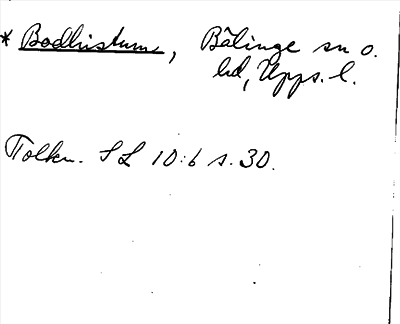 * Bodhistum, Bälinge sn o.
hd, Upps. l.
Tolkn. SL 10:6 s. 30.